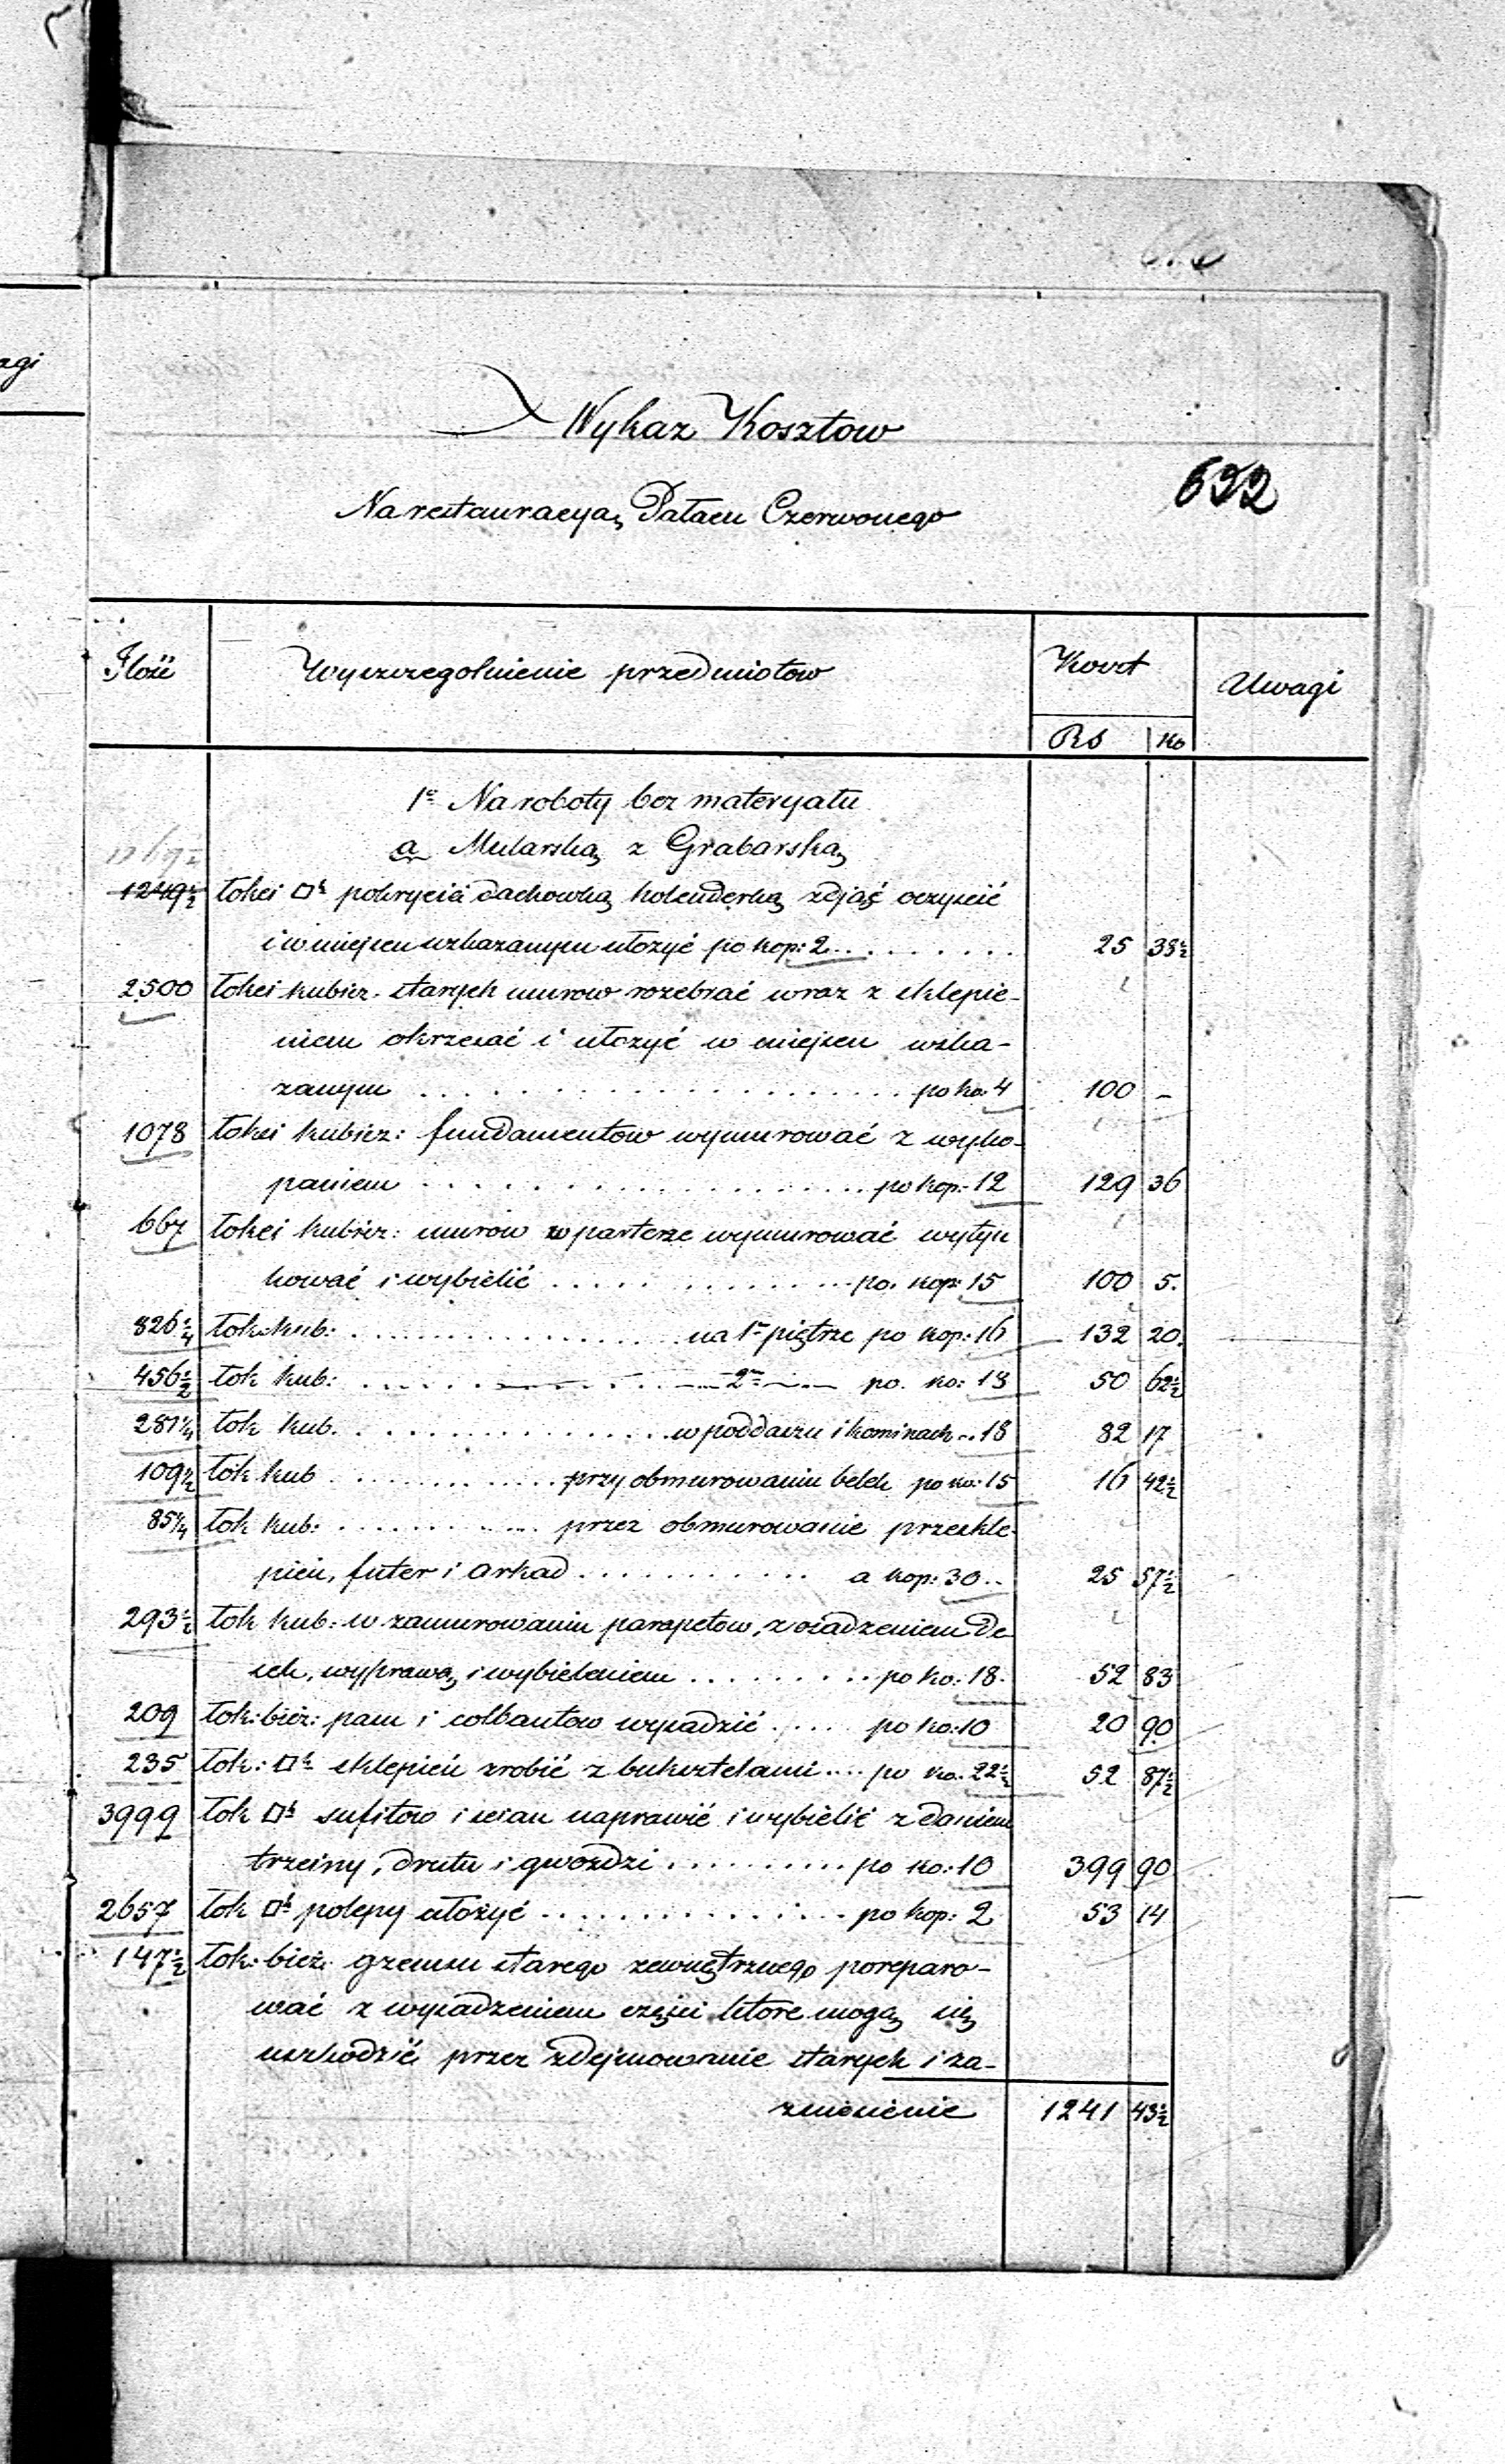 agi
Wykaz Kosztow
692
Na restauracyą Pałacu Czerwonego
Ilość Wyszczegolnienie przedmiotow Koszt Uwagi
Rs Ko
1e Na roboty bez materyału
a Mularską z Grabarską
1249½ łokci □ł pokrycia dachowką holenderką zdjąć oczyścić
i w miejscu wskazanym ułożyć po kop: 2 . . . 25 38½
2500 łokci kubicz. starych murow rozebrać wraz z sklepie-
niem okrzesać i ułożyć w miejscu wska-
zanym . . . po ko: 4 100 –
1078 łokci kubicz: fundamentow wymurować z wyko-
paniem . . . po kop: 12 129 36
667 łokci kubicz: murow w parterze wymurować wytyn
kować i wybielić . . . po. kop: 15 100 5.
826¼ łok: kub: . . . na 1m piętrze po kop: 16 132 20.
456½ łok kub: . . . 2m po. ko: 18 50 62½
281¼ łok kub. . . . w poddaszu i kominach .. 18 82 17
109½ łok kub . . . przy obmurowaniu belek po ko: 15 16 42½
85¼ łok kub: . . . przez obmurowanie przeskle-
pień, futer i arkad . . . a kop: 30 .. 25 57½
293½ łok kub: w zamurowaniu parapetow, z osadzeniem De
sek, wyprawą i wybieleniem . . . po ko: 18. 52 83
209 łok: bież: pam i wysadzić . . . po ko: 10 20 90
235 łok: □ł sklepień zrobić z buksztelami . . . po ko. 22½ 52 87½
3999 łok □ł sufitow i ścian naprawić i wybielić z daniem
trzciny, drutu i gwoździ . . . po ko: 10 399 90
2657 łok □ł polepy ułożyć . . . po kop: 2 53 14
147½ łok: bież. gzemsu starego zewnętrznego poreparo-
wać z wysadzeniem części ktore mogą się
uszkodzić przez zdejmowanie starych i za-
zniesienie 1241 43½